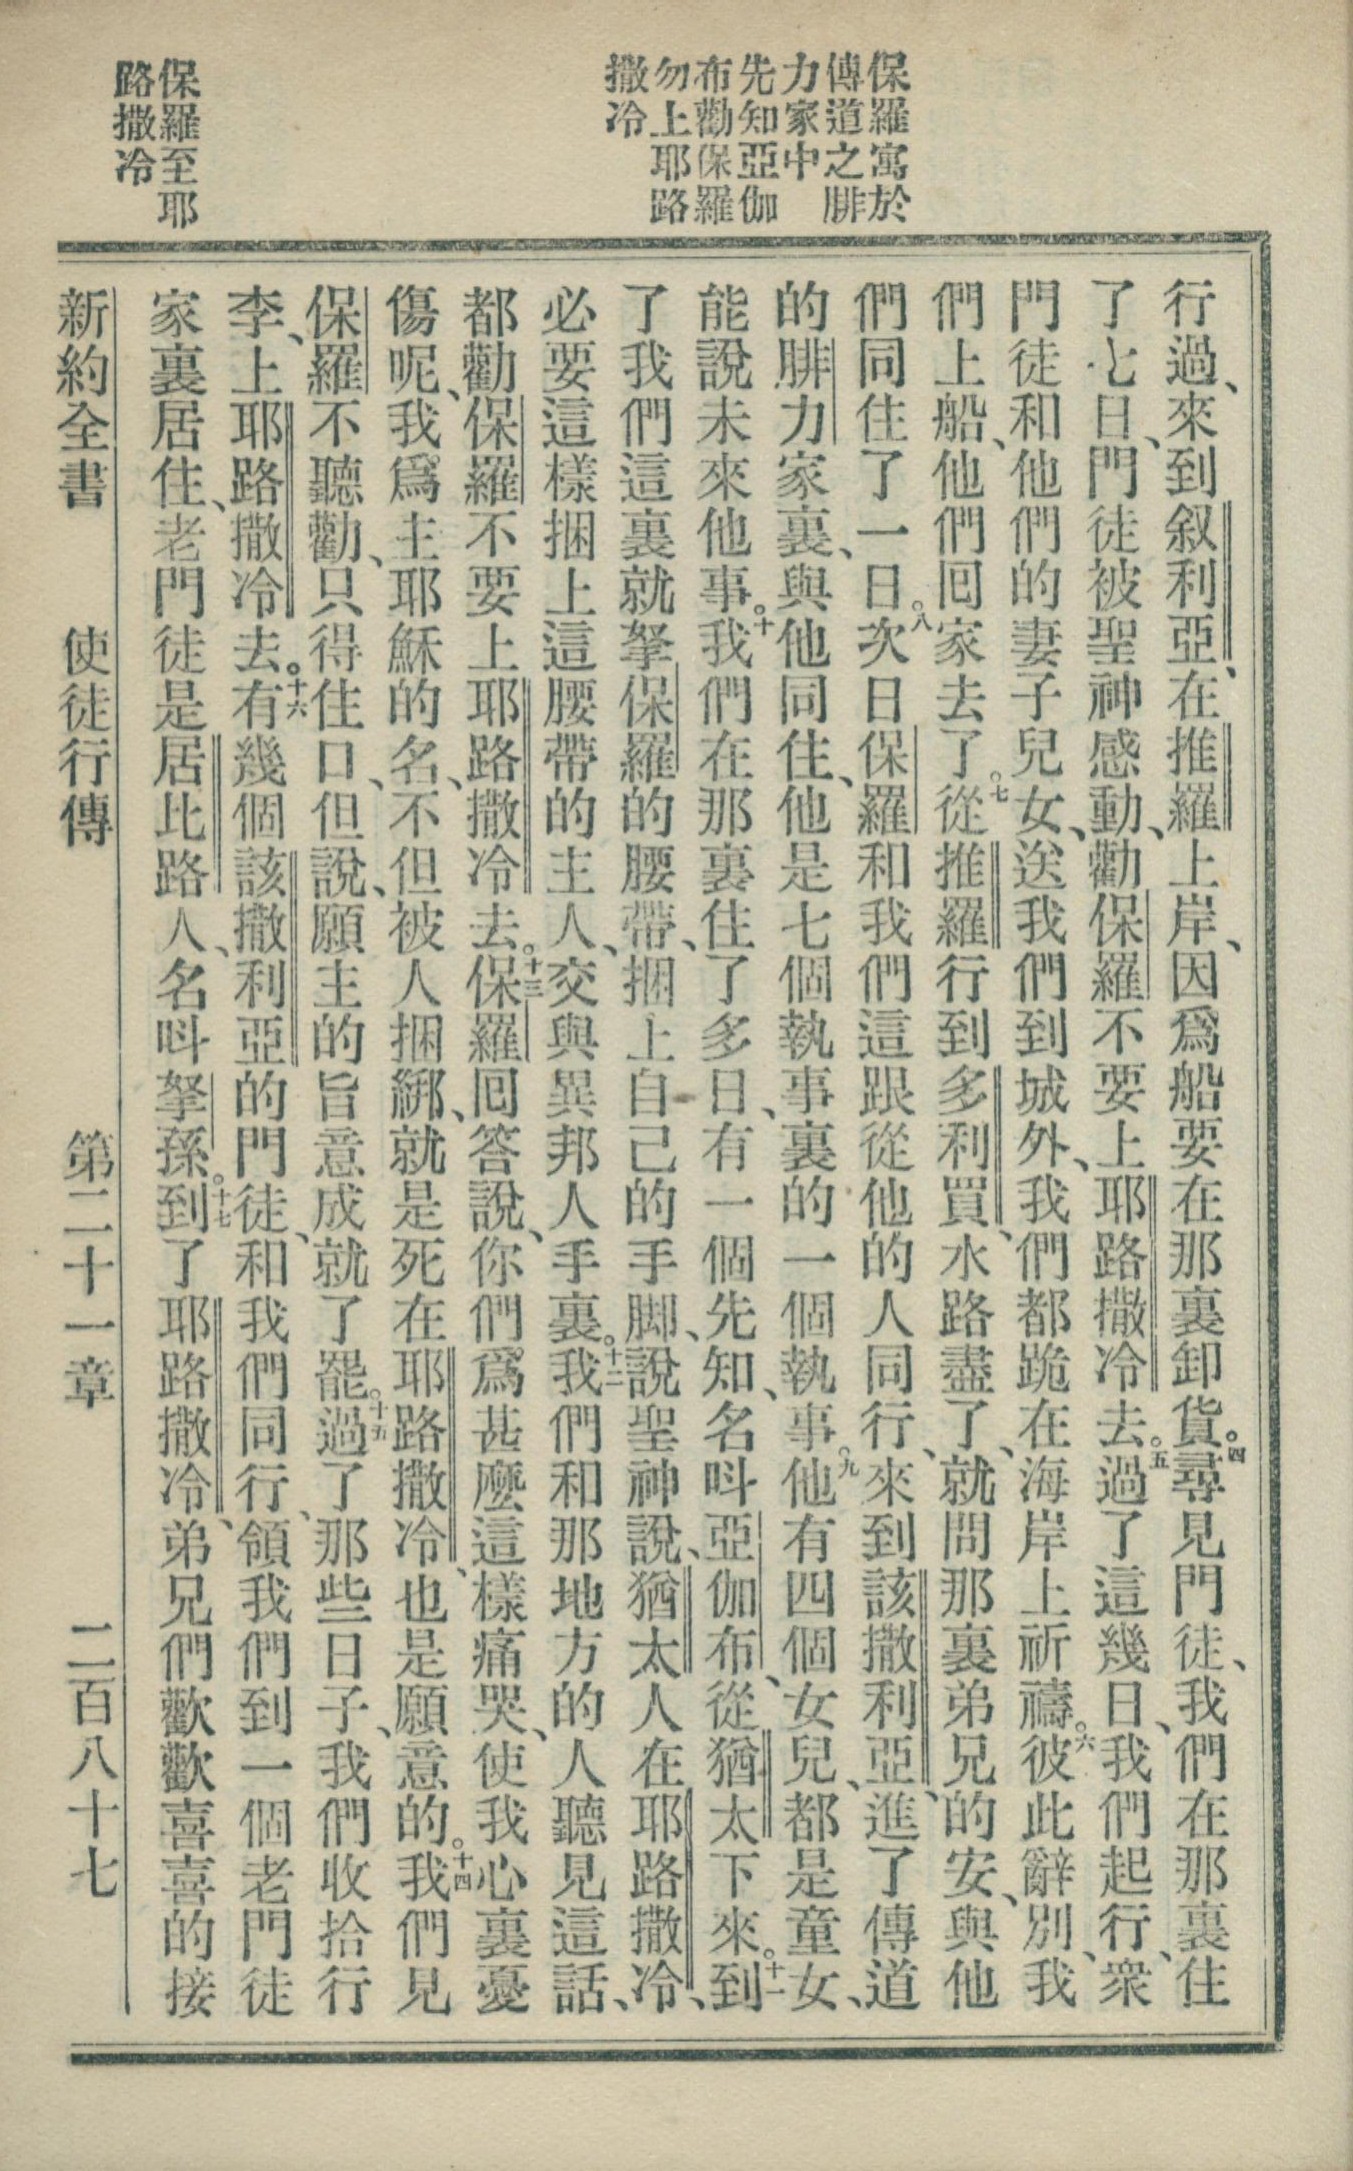 保羅寓於
傳道之腓
力家中
先知亞伽
布勸保羅
勿上耶路
撒冷
保羅至耶
路撒冷
行過、來到叙利亞、在推羅上岸、因爲船要在那裏卸貨。四尋見門徒、我們在那裏住
了七日、門徒被聖神感動、勸保羅不要上耶路撒冷去。五過了這幾日、我們起行、衆
門徒和他們的妻子兒女、送我們到城外、我們都跪在海岸上祈禱。六彼此辭別、我
們上船、他們囘家去了。七從推羅行到多利買、水路盡了、就問那裏弟兄的安、與他
們同住了一日。八次日保羅和我們這跟從他的人同行、來到該撒利亞、進了傳道
的腓力家裏、與他同住、他是七個執事裏的一個執事。九他有四個女兒、都是童女、
能說未來他事。十我們在那裏住了多日、有一個先知、名呌亞伽布、從猶太下來。十一到
了我們這裏就拏保羅的腰帶、捆上自己的手脚、說聖神說、猶太人在耶路撒冷、
必要這樣捆上這腰帶的主人、交與異邦人手裏。十二我們和那地方的人聽見這話、
都勸保羅不要上耶路撒冷去。十三保羅囘答說、你們爲甚麼這樣痛哭、使我心裏憂
傷呢、我爲主耶穌的名、不但被人捆綁、就是死在耶路撒冷、也是願意的。十四我們見
保羅不聽勸、只得住口、但說、願主的旨意成就了罷。十五過了那些日子、我們收拾行
李、上耶路撒冷去。十六有幾個該撒利亞的門徒、和我們同行、領我們到一個老門徒
家裏居住、老門徒是居比路人、名呌拏孫。十七到了耶路撒冷、弟兄們歡歡喜喜的接
新約全書 使徒行傳 第二十一章 二百八十七